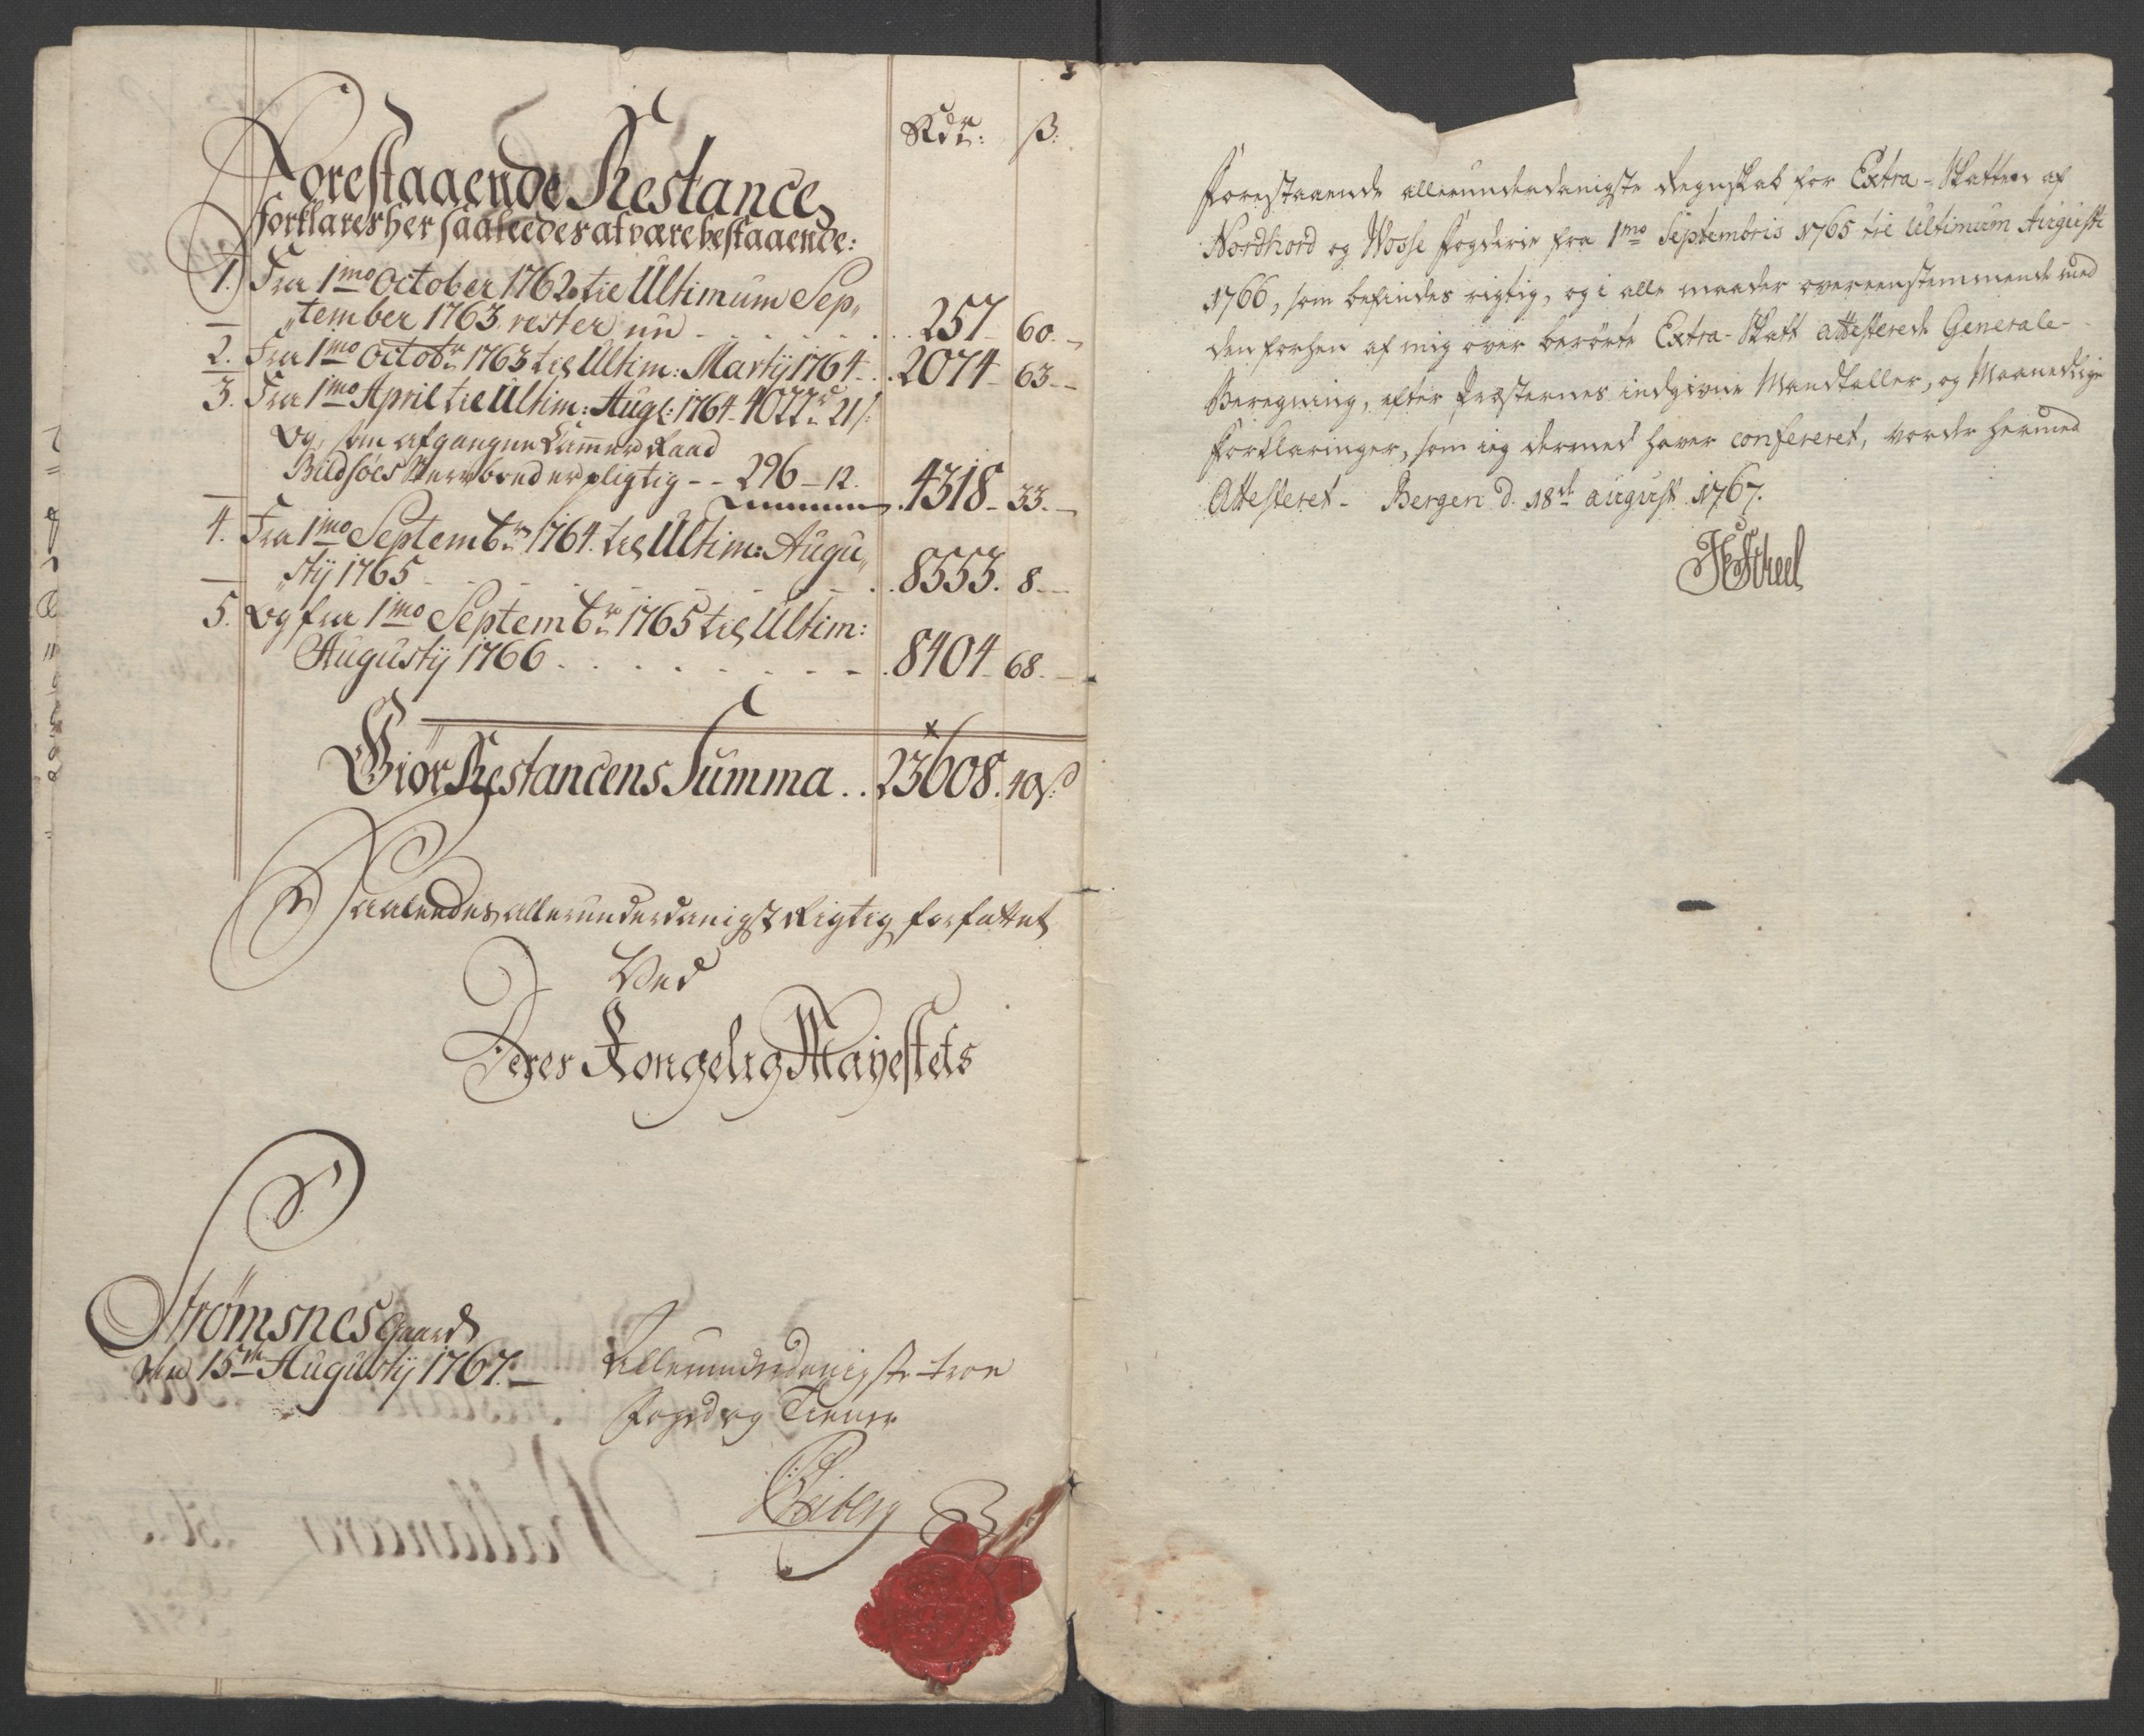 Rdr: ß:
Forestaaende Restance
forklares her saaledes at være bestaaende:
1. Fra 1mo October 1762 til Ultimum Sep„
„tember 1763 rester nu . . . 257 60.
2. Fra 1mo Octobr 1763 til Ultim: Martij 1764 . 2074 63.
3. Fra 1mo April til Ultim: Aug: 1764 4022 rd 21 ß:
Og, som afgangne Cammer Raad
Bildsøes Sterboe er pligtig - - 296 - 12.
4318. 33.
4. Fra 1mo Septembr 1764. til Ultim: Augu„
„stij 1765 . . . 8553. 8.
5. Og fra 1mo Septembr 1765 til Ultim:
Augustij 1766 . . . 8404. 68.
Giør Restancens Summa . . 23608. 40 ß:
Saaledes allerunderdanigst Rigtig forfattet
Ved
Deres Kongelig Mayestets
Strømsnes Gaard
den 15de Augustij 1767.
Allerunderdanigste troe
Foged og Tiener
Heiberg
Forestaaende allerunderdanigste Regnskab for Extra-Skatten af
Nordhord og Wosse Fogderie fra 1mo Septembris 1765 til Ultimum Augusti
1766, som befindes rigtig, og i alle maader overeenstemmende med
den forhen af mig over berørte Extra-Skatt attesterede Generale-
Beregning, efter Præsternes indgivne Mandtaller, og Maanedlige
Forklaringer, som ieg dermed haver confereret, vorder hermed
Attesteret - Bergen d. 18de august 1767.